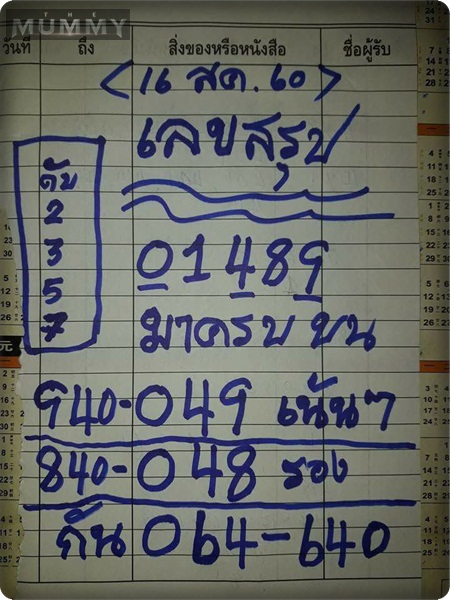 THE
MUMMY
วันที่ ถึง สิ่งของหรือหนังสือ ชื่อผู้รับ
<16 สค. 60>
เลขสรุป
ดับ
2
3
5
7
01489
มาครบ บน
940-049 เน้นๆ
840-048 รอง
กัน 064-640